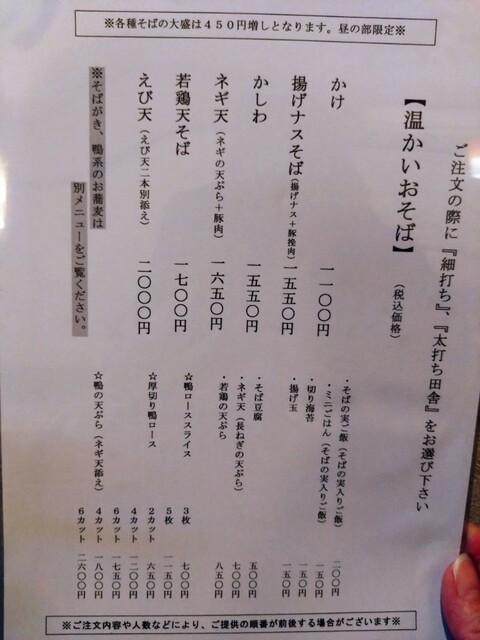 ※各種そばの大盛は４５０円増しとなります。昼の部限定※
ご注文の際に『細打ち』、『太打ち田舎』をお選び下さい
【温かいおそば】（税込価格）
かけ 一一〇〇円
揚げナスそば（揚げナス＋豚挽肉） 一五五〇円
かしわ 一五五〇円
ネギ天（ネギの天ぷら＋豚肉） 一六五〇円
若鶏天そば 一七〇〇円
えび天（えび天二本別添え） 二〇〇〇円
※そばがき、鴨系のお蕎麦は
別メニューをご覧ください。
・そばの実ご飯（そばの実入りご飯） 二〇〇円
・ミニごはん（そばの実入りご飯） 一五〇円
・切り海苔 一五〇円
・揚げ玉 一五〇円
・そば豆腐 五〇〇円
・ネギ天（長ねぎの天ぷら） 七〇〇円
・若鶏の天ぷら 八五〇円
☆鴨ローススライス ３枚 七〇〇円
５枚 一一五〇円
☆厚切り鴨ロース ２カット 六五〇円
４カット 一二〇〇円
６カット 一七五〇円
☆鴨の天ぷら（ネギ天添え） ４カット 一八〇〇円
６カット 二六〇〇円
※ご注文内容や人数などにより、ご提供の順番が前後する場合がございます※